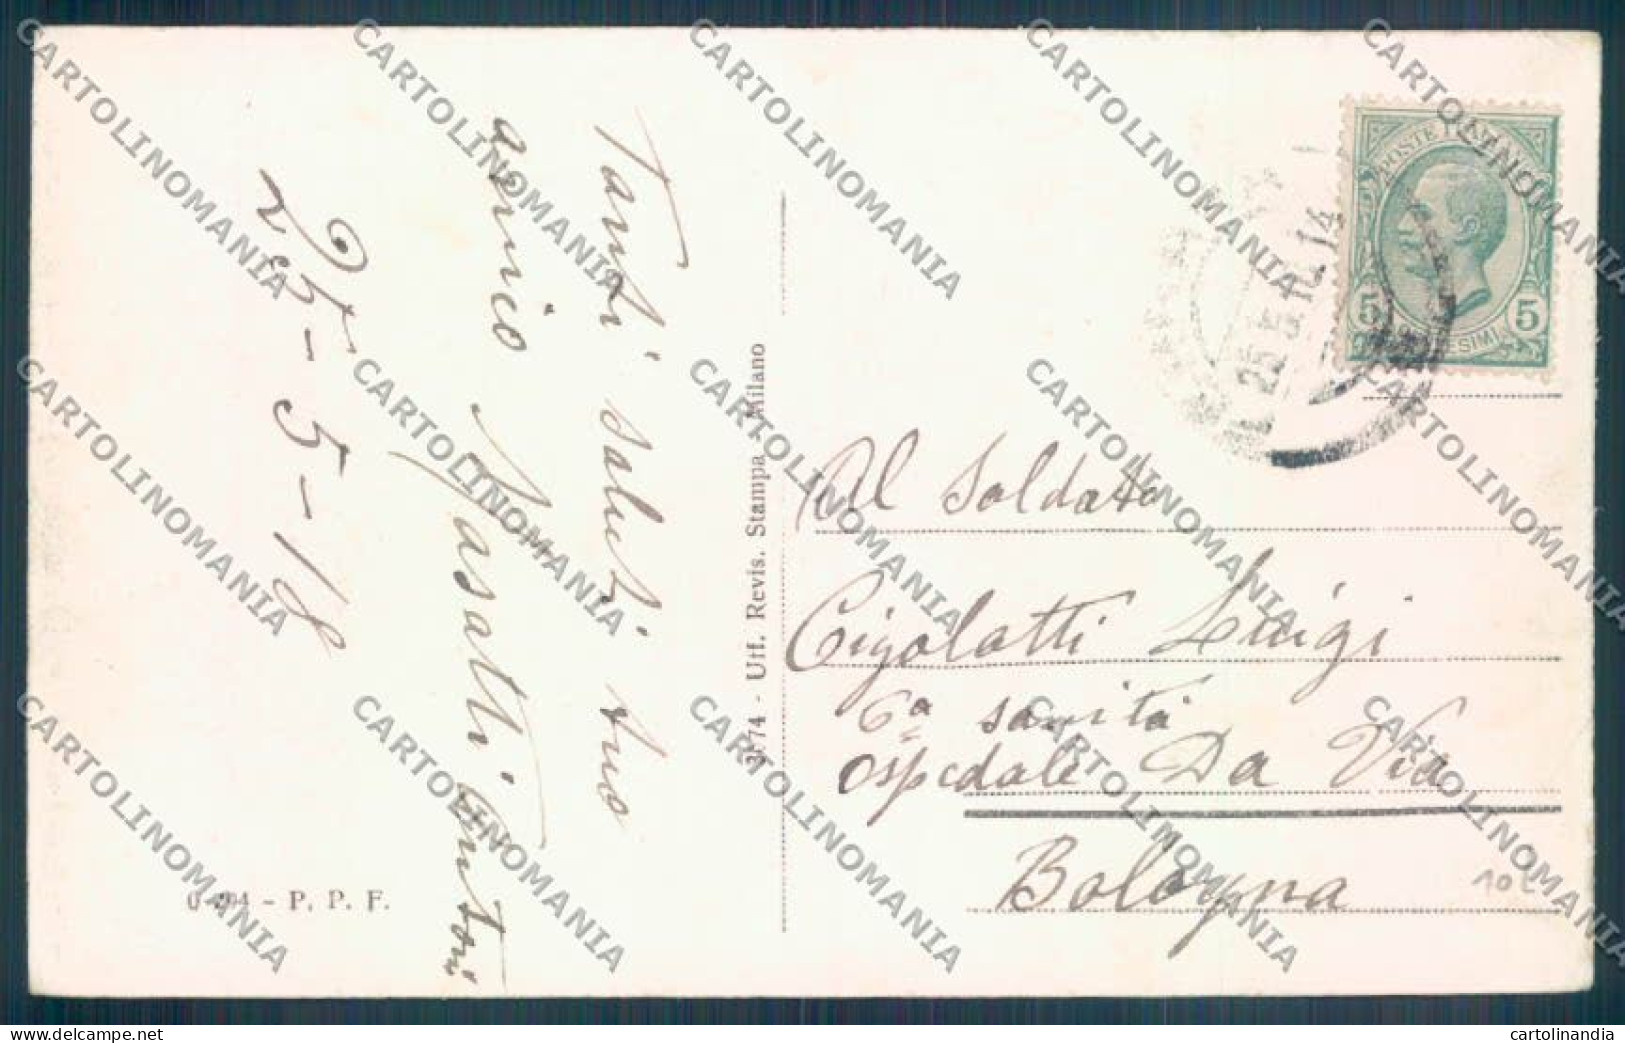 Tanti saluti tuo
amico
25-5-18
2074 - Uff. Revis. Stampa, Milano
- P. P. F.
POSTE ITALIANE
5 5
CENTESIMI
Al Soldato
Cigolatti Luigi
6ª sanità
ospedale Da Via
Bologna
CARTOLINOMANIA
delcampe.net
cartolinandia